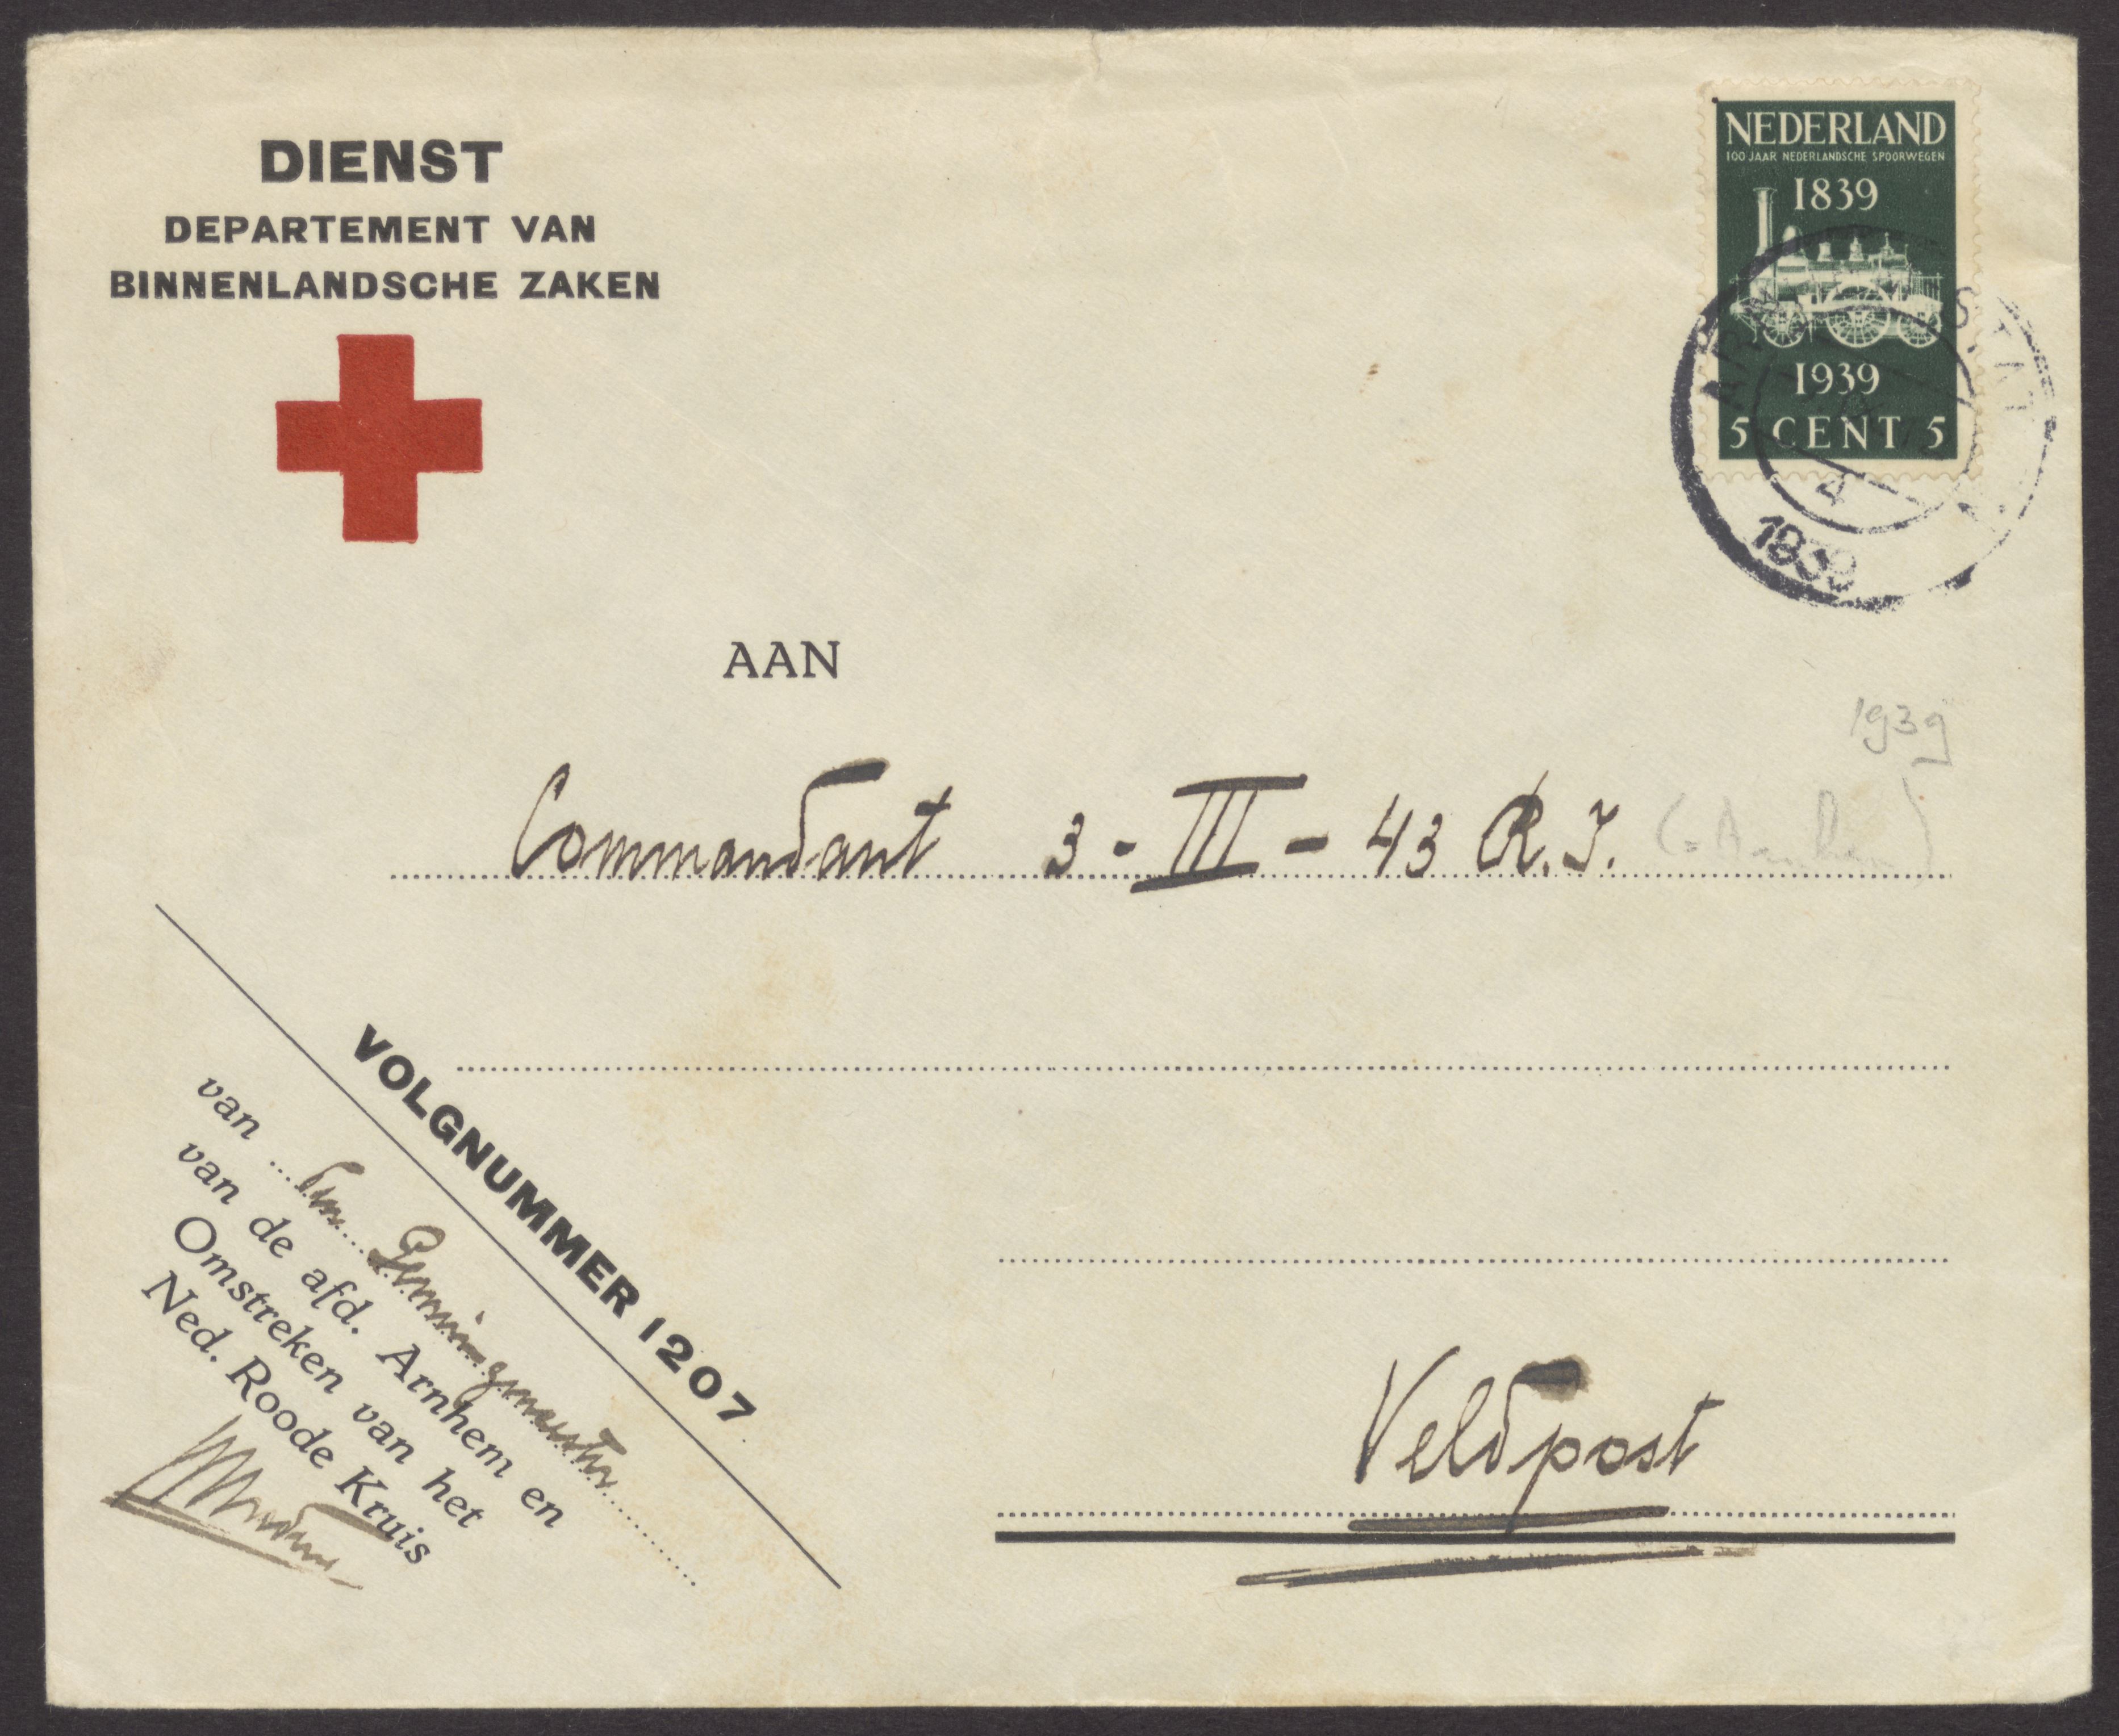 DIENST
DEPARTEMENT VAN
BINNENLANDSCHE ZAKEN
NEDERLAND
100 JAAR NEDERLANDSCHE SPOORWEGEN
1839
1939
5 CENT 5
4
1939
AAN
1939
Commandant 3 - III - 43 R.I. (= Arnhem)
VOLGNUMMER 1207.
van
van de afd. Arnhem en
Omstreken van het
Ned. Roode Kruis
Veldpost